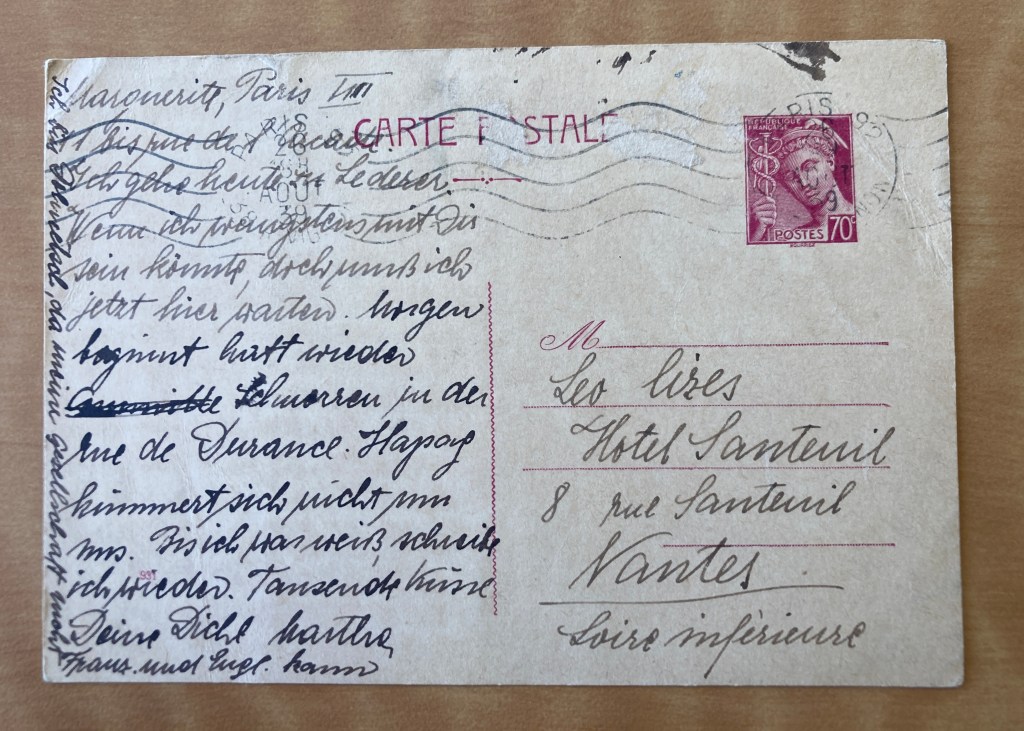 Marguerite, Paris VIII
1 bis rue de l'
Ich gehe heute zu Lederer.
Wenn ich wenigstens mit Dir
sein könnte, doch muß ich
jetzt hier warten. Morgen
beginnt halt wieder
Schnorren in der
rue de Durance. Hapag
kümmert sich nicht um
uns. Bis ich was weiß, schreibe
ich wieder. Tausende Küsse
Deine Dich l. Martha
Franz. und Engl. kann
Ich bin da meine Gesellschaft nicht
CARTE POSTALE
PARIS
AOUT
39
REPUBLIQUE
FRANCAISE
POSTES 70c
937
M
Leo Lizes
Hotel Santeuil
8 rue Santeuil
Nantes
Loire inférieure